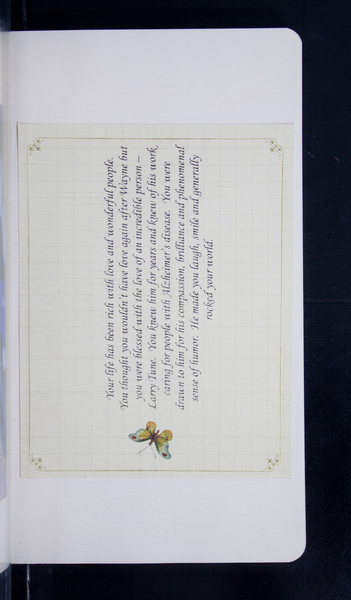 Your life has been rich with love and wonderful people.
You thought you wouldn't have love again after Wayne but
you were blessed with the love of an incredible person –
Larry Tune. You knew him for years and knew of his work
caring for people with Alzheimer's disease. You were
drawn to him for his compassion, brilliance and phenomenal
sense of humor. He made you laugh, smile and generally
rocked your world.